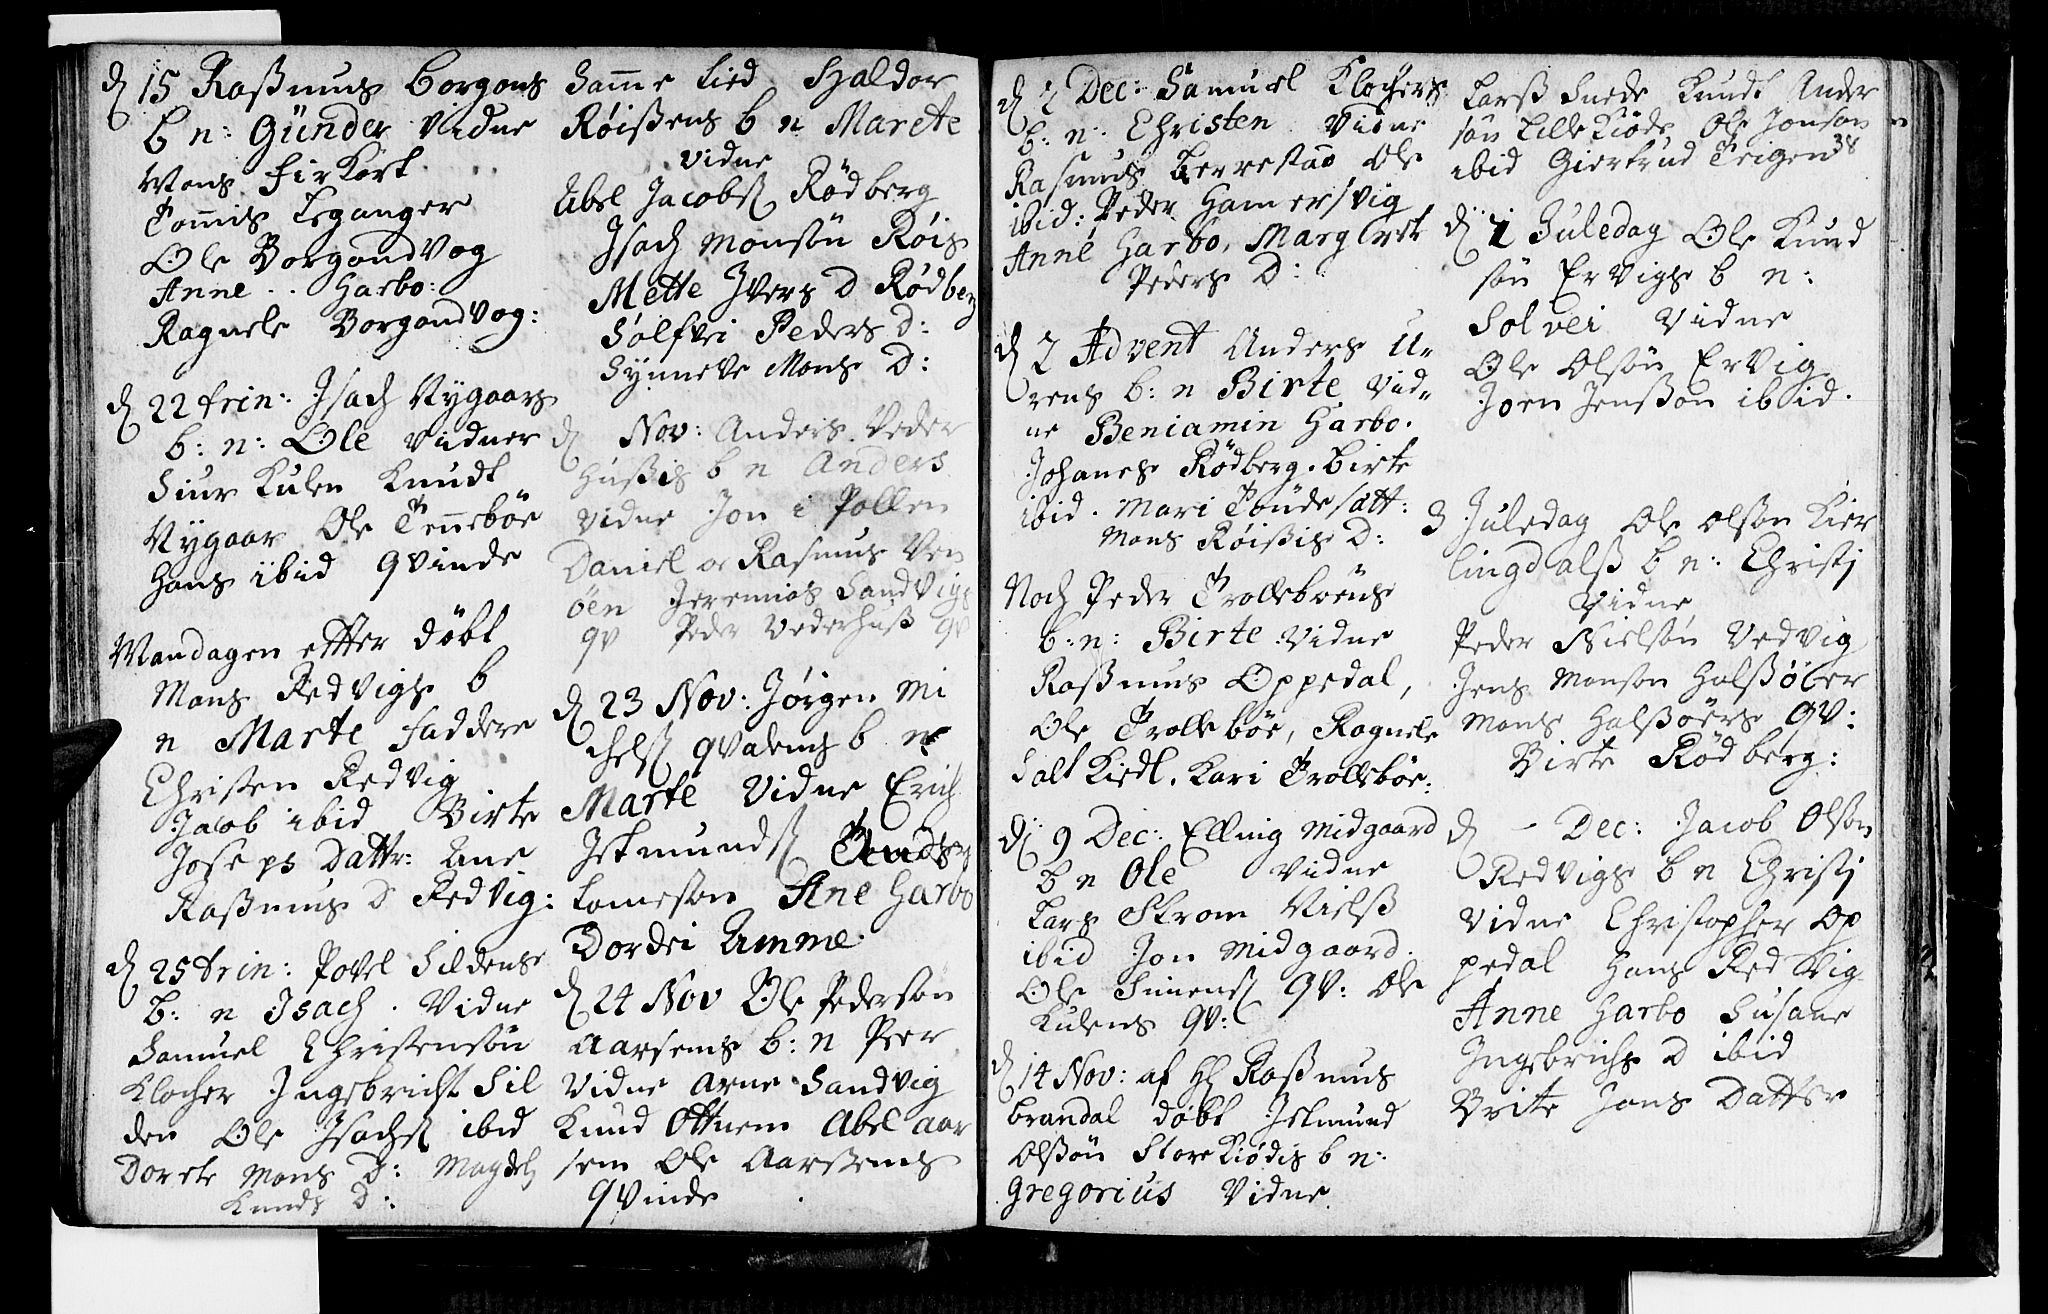 d 15 Rasmus Borgons
b n: Günder vidne
Mons Firkort
Tomis Leganger
Ole Borgondvog
Anne .. Harbo:
Ragnele Borgondvog:
d 22 trin: Isach Nygaars
b: n: Ole vidner
Siur Kulen Knudt
Nygaar Ole Tennebøe
Hans ibid qvinde
Mandagen effter døbt
Mons Redvigs b
n Marte faddere
Christen Redvig
Jacob ibid Birte
Joseps Dattr: Ane
Rasmus D Redvig:
d 25 trin: Povel Sildens
b: n Isach. Vidne
Samuel Christensøn
Klocher Ingebricht Sil
den Ole Isachs ibid
Dorete Mons D: Magdel
Knuds D:
Samme tied Haldor
Røissens b n Marete
vidne
Abel Jacobs Rødberg
Isach Monsøn Røis
Mette Ivers D Rødberg
Solfvei Peders D:
Synneve Mons D:
d Nov: Anders Veder
Hussis b n Anders
vidne Jon i Pollen
Daniel oc Rasmus Ven
øen Jeremias Sandvigs
qv Peder Vederhuss qv
d 23 Nov: Jørgen Mi
chels qvalens b n
Marte Vidne Erich
Istmunds
Lomeson Ane Harbo
Dordei Amme.
d 24 Nov Ole Pedersøn
Aarsems b: n Peer
Vidne Arne Sandvig
Knud Ottnem Abel Aar
sem Ole Aarssems
qvinde
d 2 Dec: Samuel Klochers
b: n: Christen Vidne
Rasmus Berrestad Ole
ibid: Peder Hamersvig
Anne Harbo, Margrete
Peders D:
d 2 Advent Anders U-
rens b: n Birte Vid-
ne Beniamin Harbo.
Johanes Rødberg. Birte
ibid. Mari
Mons Røissis D:
Noch Peder Trollebøens
b: n: Birte Vidne
Rasmus Oppedal,
Ole Trollebøe, Ragnele
Saltkiedl. Kari Trollebøe:
d 9 Dec: Elling Midgaard
b n Ole Vidne
Lars Strom Niels
ibid Jon Midgaard.
Ole Simens qv: Ole
Kulens qv:
d 14 Nov: af H Rasmus
Brandal døbt Istmund
Olsøn Storekiødis b n:
Gregorius Vidne
Lars Snede Knudt Ander
søn Lillekiøde Ole Jonsøn
ibid Giertrud Teigen 38
d 1 Juledag Ole Knud
søn Ervigs b n:
Solvei Vidne
Ole Olsøn Ervig
Joen Jenssøn ibid.
3 Juledag Ole Olsøn Kier
lingdalss b n: Christj
Vidne
Peder Nielsøn Vedvig
Jens Monsøn Halssøer
Mons Halssøers qv:
Birte Rødberg:
d - Dec: Jacob Olsøn
Redvigs b n Christj
Vidne Christopher Op
pedal Hans Redvig
Anne Harbo Susane
Ingebrichs D ibid
Brite Jons Datter